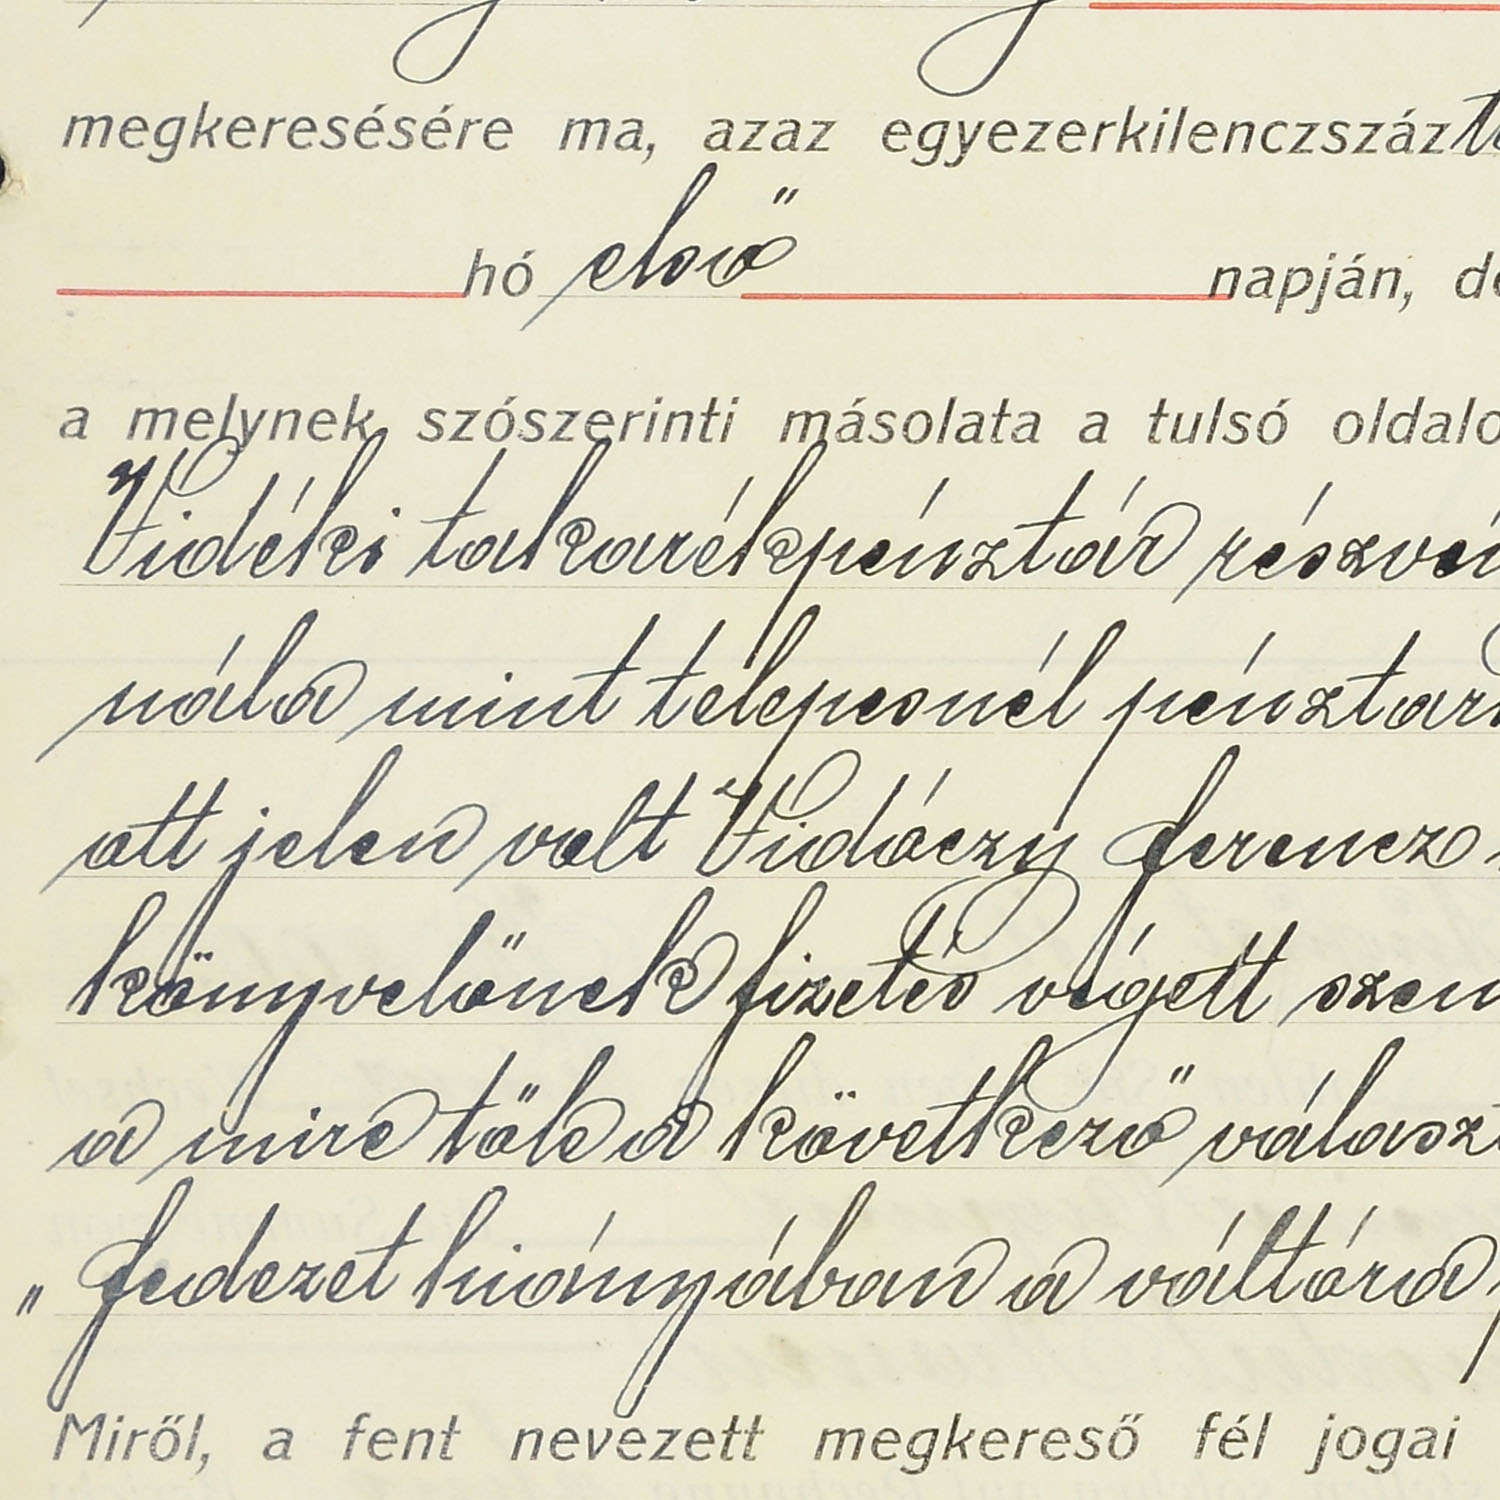 megkeresésére ma, azaz egyezerkilenczszáz
hó első napján,
a melynek szószerinti másolata a tulsó
Vidéki takarékpénztár
nála mint telepesnél
att jelen volt Vidóczy Ferencz
könyvelőnek fizetés végett
a mire tőle a következő
„ Fedezet hiányában a váltóra
Miről, a fent nevezett megkereső fél jogai